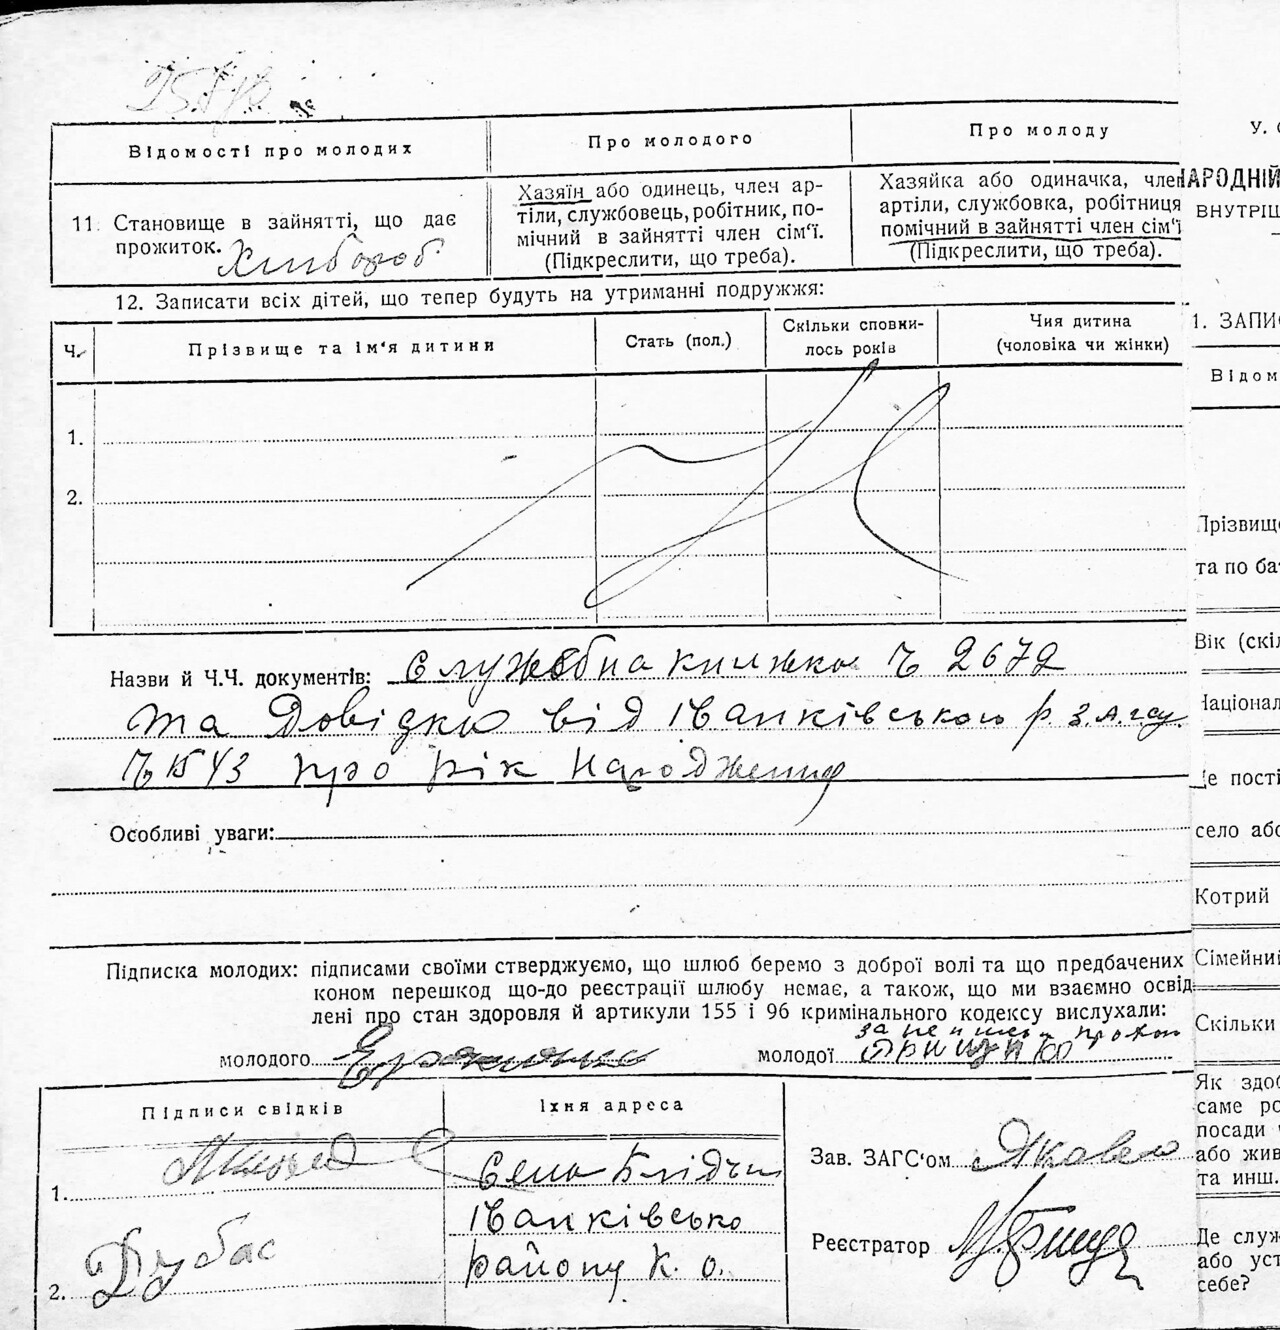 Відомості про молодих
Про молодого
Про молоду
11. Становище в зайнятті, що дає
прожиток. Хлібороб
Хазяїн або одинець, член ар-
тіли, службовець, робітник, по-
мічний в зайнятті член сім'ї.
(Підкреслити, що треба).
Хазяйка або одиначка, член
артіли, службовка, робітниця
помічний в зайнятті член сім'ї
(Підкреслити, що треба).
12. Записати всіх дітей, що тепер будуть на утриманні подружжя:
Ч.
Прізвище та ім'я дитини
Стать (пол.)
Скільки сповни-
лось років
Чия дитина
(чоловіка чи жінки)
1.
2.
Назви й Ч.Ч. документів: Служебна книжка Ч 2672
та Довідкю від Іванківського р З.А.Г.су.
Ч 1543 про рік народження
Особливі уваги:
Підписка молодих: підписами своїми стверджуємо, що шлюб беремо з доброї волі та що предбачених
коном перешкод що-до реєстрації шлюбу немає, а також, що ми взаємно освід
лені про стан здоровля й артикули 155 і 96 кримінального кодексу вислухали:
молодого
молодої
Підписи свідків
Їхня адреса
1.
Села Блідчи
Іванківсько
району К. О.
2. Дубас
Зав. ЗАГС'ом Яковен
Реєстратор
У.
НАРОДНІЙ
ВНУТРІШ
1. ЗАПИС
Відом
Прізвище
та по ба
Вік (скіл
Націонал
Де пості
село або
Котрий
Сімейний
Скільки
Як здо
саме ро
посади ч
або жив
та инш.
Де служ
або уст
себе?